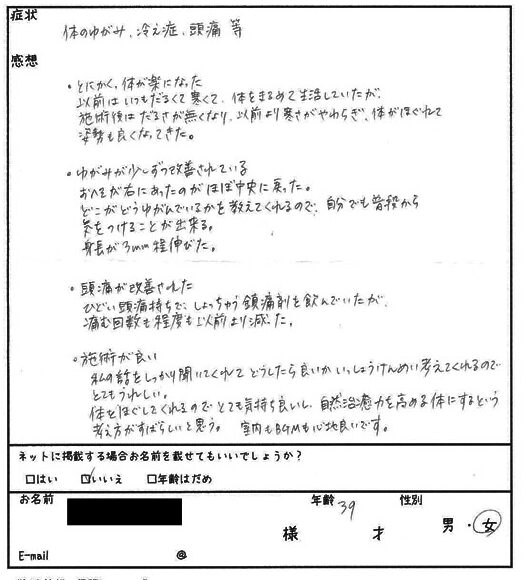 症状
体のゆがみ、冷え症、頭痛 等
感想
・とにかく、体が楽になった
以前はいつもだるくて寒くて、体をまるめて生活していたが、
施術後はだるさが無くなり、以前より寒さがやわらぎ、体がほぐれて
姿勢も良くなってきた。
・ゆがみが少しずつ改善されている
おへそが右にあったのがほぼ中央に戻った。
どこがどうゆがんでいるかを教えてくれるので、自分でも普段から
気をつけることが出来る。
身長が3mm程伸びた。
・頭痛が改善された
ひどい頭痛持ちで、しょっちゅう鎮痛剤を飲んでいたが、
痛む回数も程度も以前より減った。
・施術が良い
私の話をしっかり聞いてくれて どうしたら良いか いっしょうけんめい考えてくれるので
とてもうれしい。
体をほぐしてくれるのでとても気持ち良いし、自然治癒力を高める体にするという
考え方がすばらしいと思う。 室内もBGMも心地良いです。
ネットに掲載する場合お名前を載せてもいいでしょうか?
□はい ☑いいえ □年齢はだめ
お名前 年齢 39 性別
様 才 男・女
E-mail @